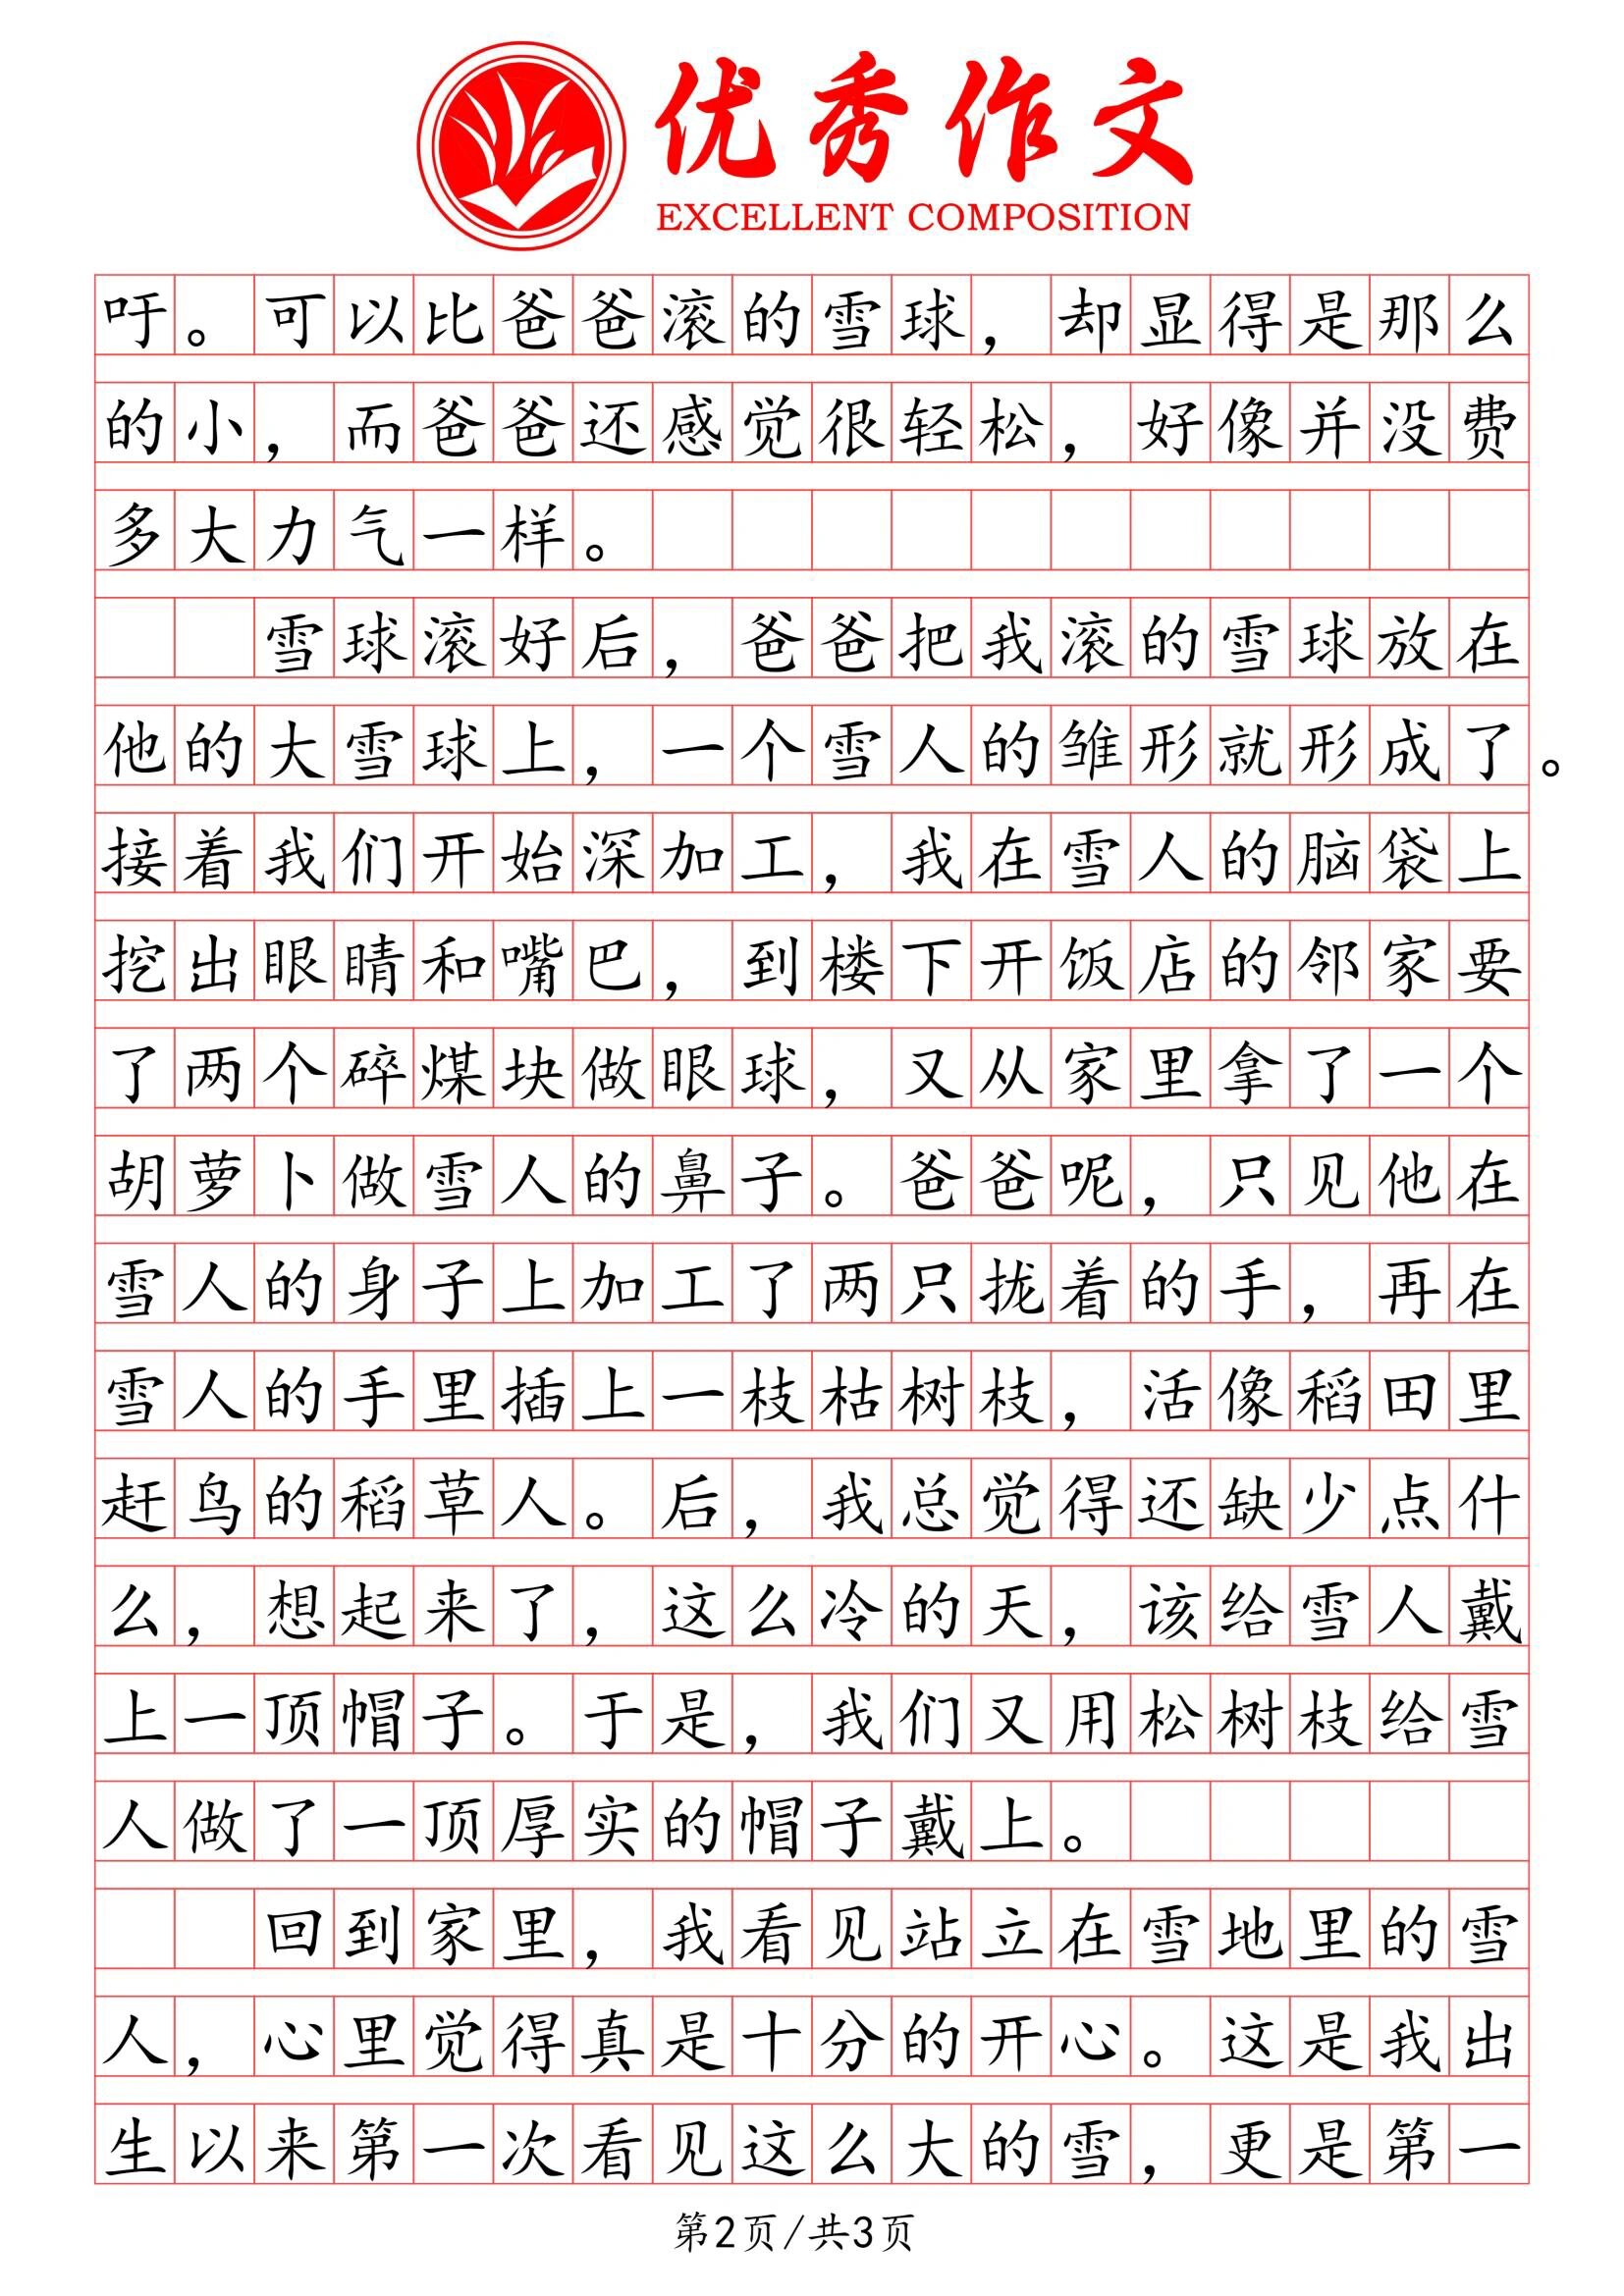 优秀作文
EXCELLENT COMPOSITION
吁。可以比爸爸滚的雪球，却显得是那么
的小，而爸爸还感觉很轻松，好像并没费
多大力气一样。
雪球滚好后，爸爸把我滚的雪球放在
他的大雪球上，一个雪人的雏形就形成了。
接着我们开始深加工，我在雪人的脑袋上
挖出眼睛和嘴巴，到楼下开饭店的邻家要
了两个碎煤块做眼球，又从家里拿了一个
胡萝卜做雪人的鼻子。爸爸呢，只见他在
雪人的身子上加工了两只拢着的手，再在
雪人的手里插上一枝枯树枝，活像稻田里
赶鸟的稻草人。后，我总觉得还缺少点什
么，想起来了，这么冷的天，该给雪人戴
上一顶帽子。于是，我们又用松树枝给雪
人做了一顶厚实的帽子戴上。
回到家里，我看见站立在雪地里的雪
人，心里觉得真是十分的开心。这是我出
生以来第一次看见这么大的雪，更是第一
第2页/共3页